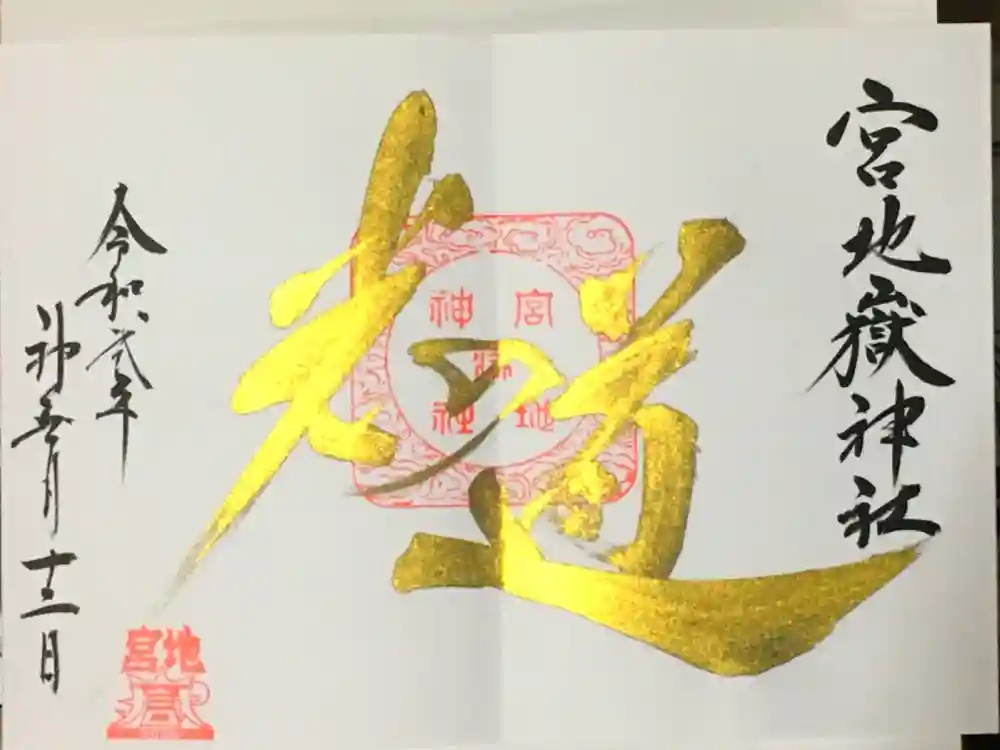 宮地嶽神社
光の道
宮地
嶽
神社
令和弐年
神無月十三日
宮地